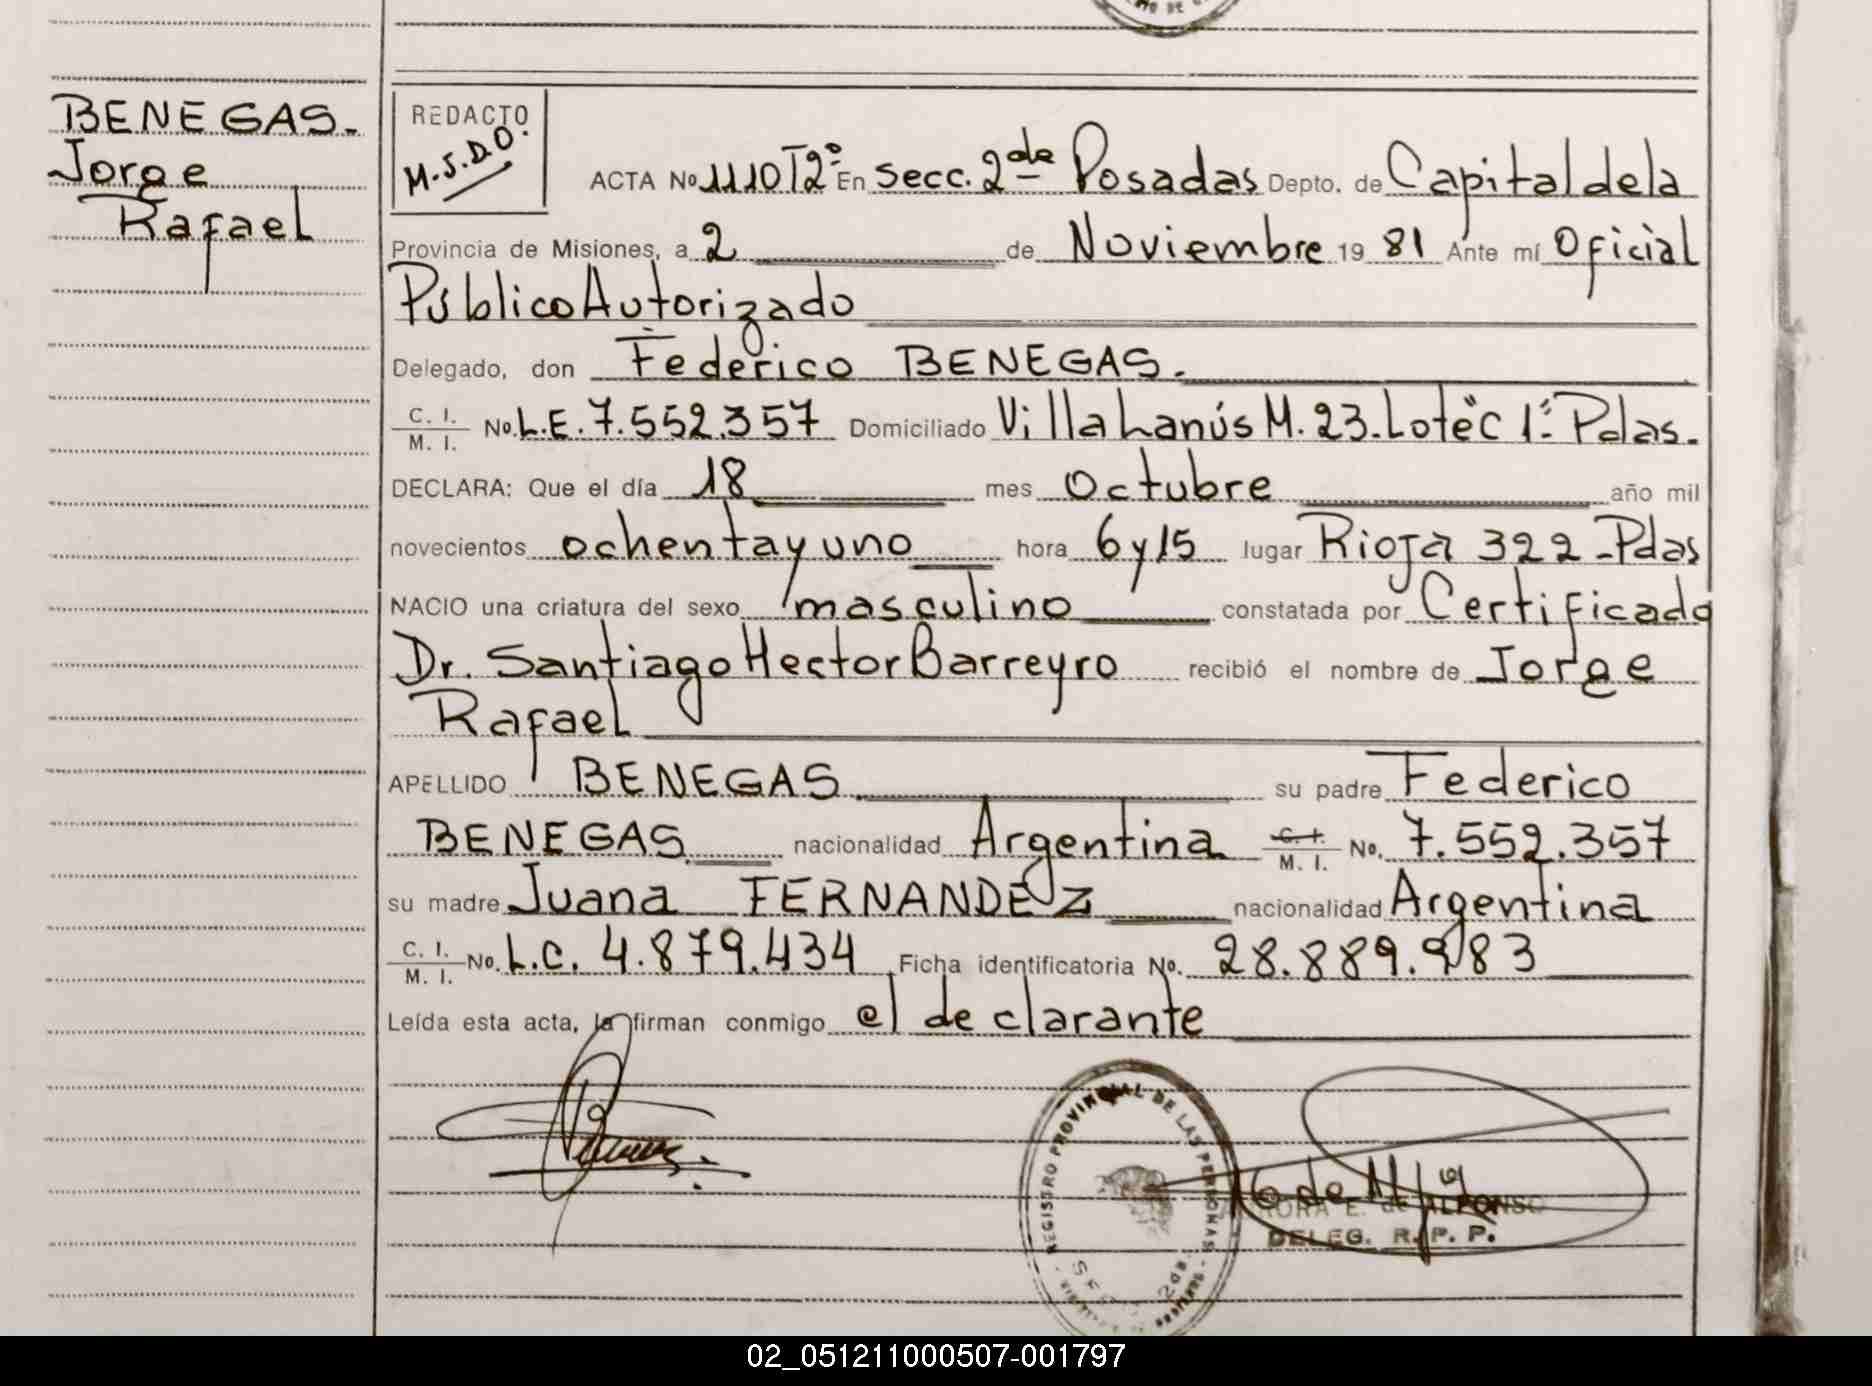 BENEGAS.
Jorge
Rafael
REDACTO
M.S.D.O.
ACTA No 1110 T2º En Secc. 2de Posadas Depto. de Capital de la
Provincia de Misiones, a 2 de Noviembre 19 81 Ante mí Oficial
Público Autorizado
Delegado, don Federico BENEGAS.
C. I. / M. I. No. L.E. 7.552.357 Domiciliado Villa Lanús M. 23. Lote "C" 1ª. Pdas.
DECLARA: Que el día 18 mes Octubre año mil
novecientos ochenta y uno hora 6 y 15 lugar Rioja 322 - Pdas
NACIO una criatura del sexo masculino constatada por Certificado
Dr. Santiago Hector Barreyro recibió el nombre de Jorge
Rafael
APELLIDO BENEGAS su padre Federico
BENEGAS nacionalidad Argentina C. I. / M. I. No. 7.552.357
su madre Juana FERNANDEZ nacionalidad Argentina
C. I. / M. I. No. L.C. 4.879.434 Ficha identificatoria No. 28.889.983
Leída esta acta, la firman conmigo el declarante
REGISTRO PROVINCIAL DE LAS PERSONAS
E. de ALFONSO
DELEG. R. P. P.
02_051211000507-001797